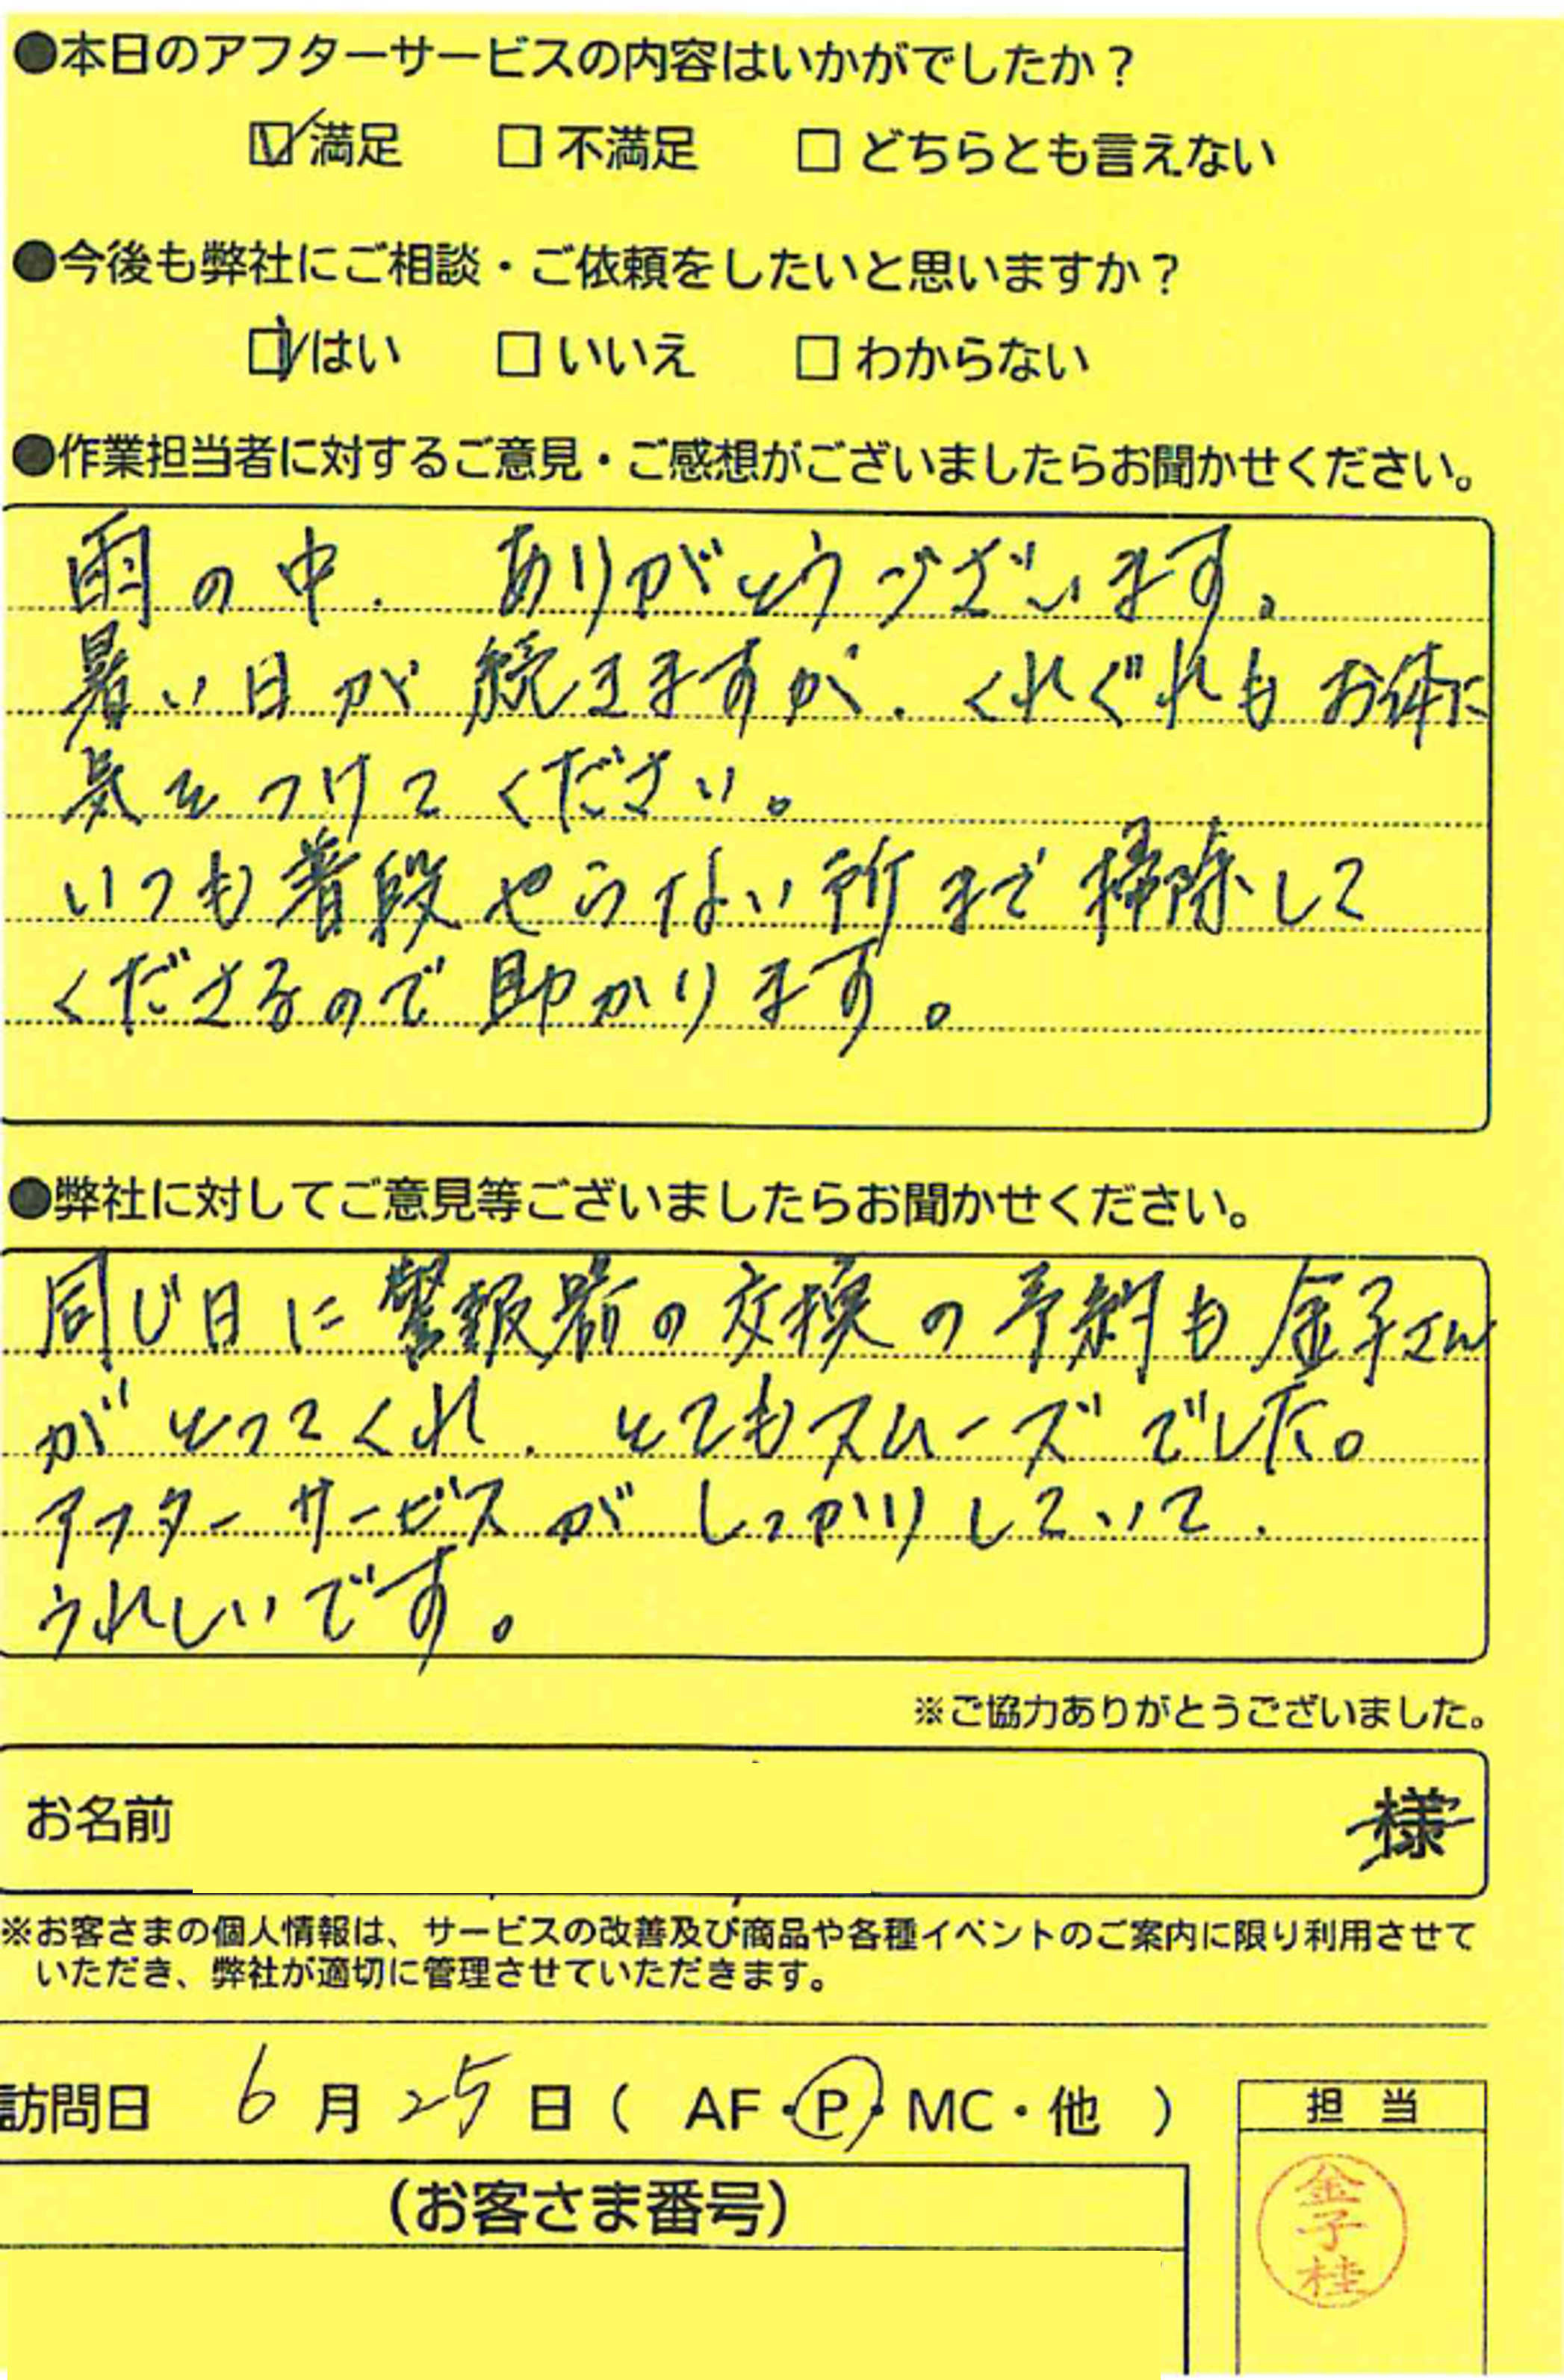 ●本日のアフターサービスの内容はいかがでしたか？
☑満足 □不満足 □どちらとも言えない
●今後も弊社にご相談・ご依頼をしたいと思いますか？
☑はい □いいえ □わからない
●作業担当者に対するご意見・ご感想がございましたらお聞かせください。
雨の中、ありがとうございます。
暑い日が続きますが、くれぐれもお体に
気をつけてください。
いつも普段やらない所まで掃除して
くださるので助かります。
●弊社に対してご意見等ございましたらお聞かせください。
同じ日に警報器の交換の予約も金子さん
がとってくれ、とてもスムーズでした。
アフターサービスがしっかりしていて、
うれしいです。
※ご協力ありがとうございました。
お名前 様
※お客さまの個人情報は、サービスの改善及び商品や各種イベントのご案内に限り利用させて
いただき、弊社が適切に管理させていただきます。
訪問日 6月25日（ AF・P・MC・他 ）
担当
（お客さま番号）
金子桂